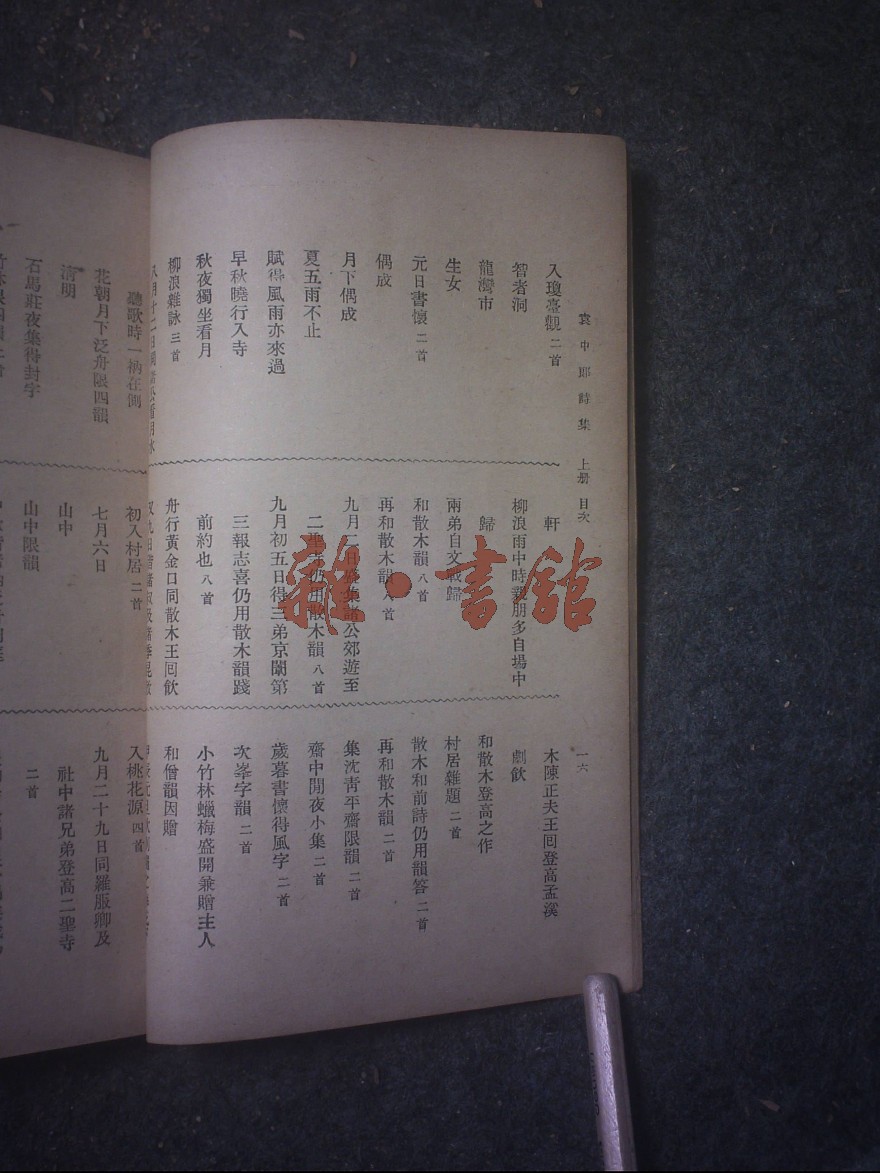 袁中郎詩集 上册 目次
一六
入瓊臺觀 二首
智者洞
龍灣市
生女
元日書懷 二首
偶成
月下偶成
夏五雨不止
賦得風雨亦來過
早秋曉行入寺
秋夜獨坐看月
柳浪雜詠 三首
軒
柳浪雨中時親朋多自場中
歸
兩弟自文戰歸
和散木韻 八首
再和散木韻 八首
九月二日盛集諸公郊遊至
二聖寺仍用散木韻 八首
九月初五日得三弟京闈第
三報志喜仍用散木韻踐
前約也 八首
舟行黃金口同散木王囘飮
木陳正夫王囘登高孟溪
劇飮
和散木登高之作
村居雜題 二首
散木和前詩仍用韻答 二首
再和散木韻 二首
集沈靑平齋限韻 二首
齋中閒夜小集 二首
歲暮書懷得風字 二首
次峯字韻 二首
小竹林蠟梅盛開兼贈主人
和僧韻因贈
聽歌時一衲在側
花朝月下泛舟限四韻
淸明
石馬莊夜集得封字
初入村居 二首
七月六日
山中
山中限韻
入桃花源 四首
九月二十九日同羅服卿及
社中諸兄弟登高二聖寺
二首
雜·書館